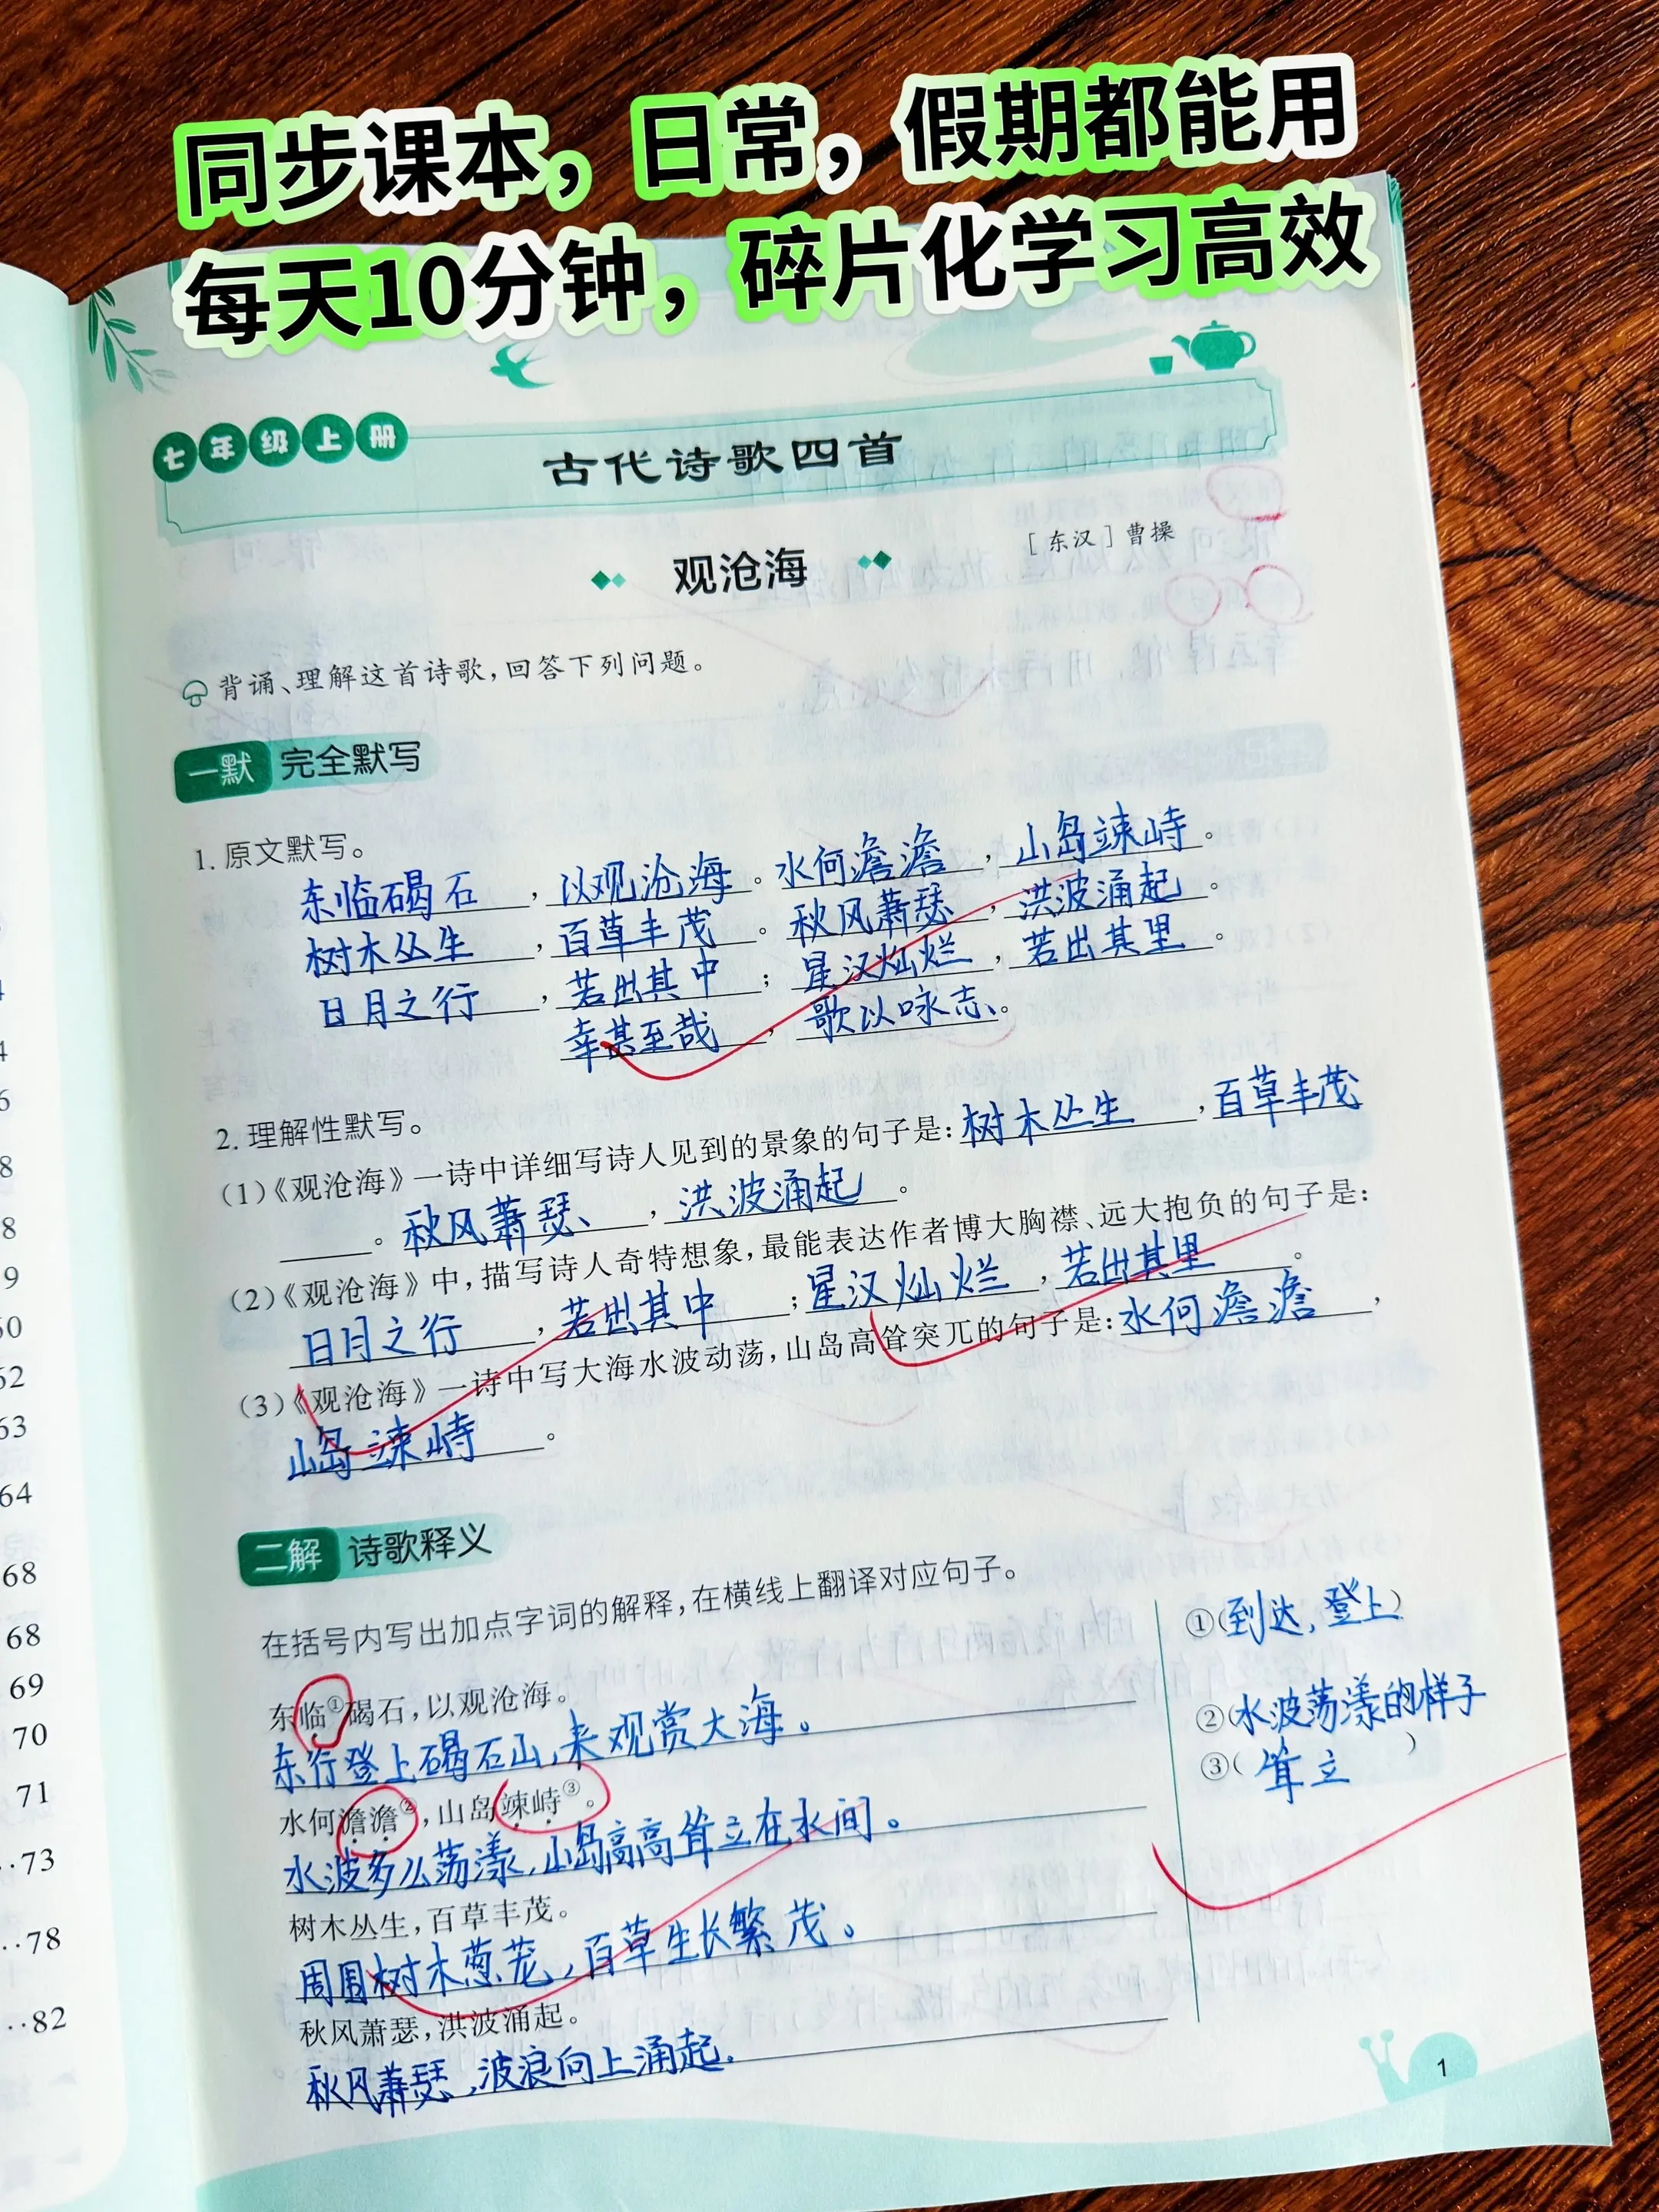 同步课本，日常，假期都能用
每天10分钟，碎片化学习高效
七年级上册
古代诗歌四首
观沧海
［东汉］曹操
背诵、理解这首诗歌，回答下列问题。
一默 完全默写
1. 原文默写。
东临碣石，以观沧海。水何澹澹，山岛竦峙。
树木丛生，百草丰茂。秋风萧瑟，洪波涌起。
日月之行，若出其中；星汉灿烂，若出其里。
幸甚至哉，歌以咏志。
2. 理解性默写。
（1）《观沧海》一诗中详细写诗人见到的景象的句子是：树木丛生，百草丰茂
。秋风萧瑟，洪波涌起。
（2）《观沧海》中，描写诗人奇特想象，最能表达作者博大胸襟、远大抱负的句子是：
日月之行，若出其中；星汉灿烂，若出其里。
（3）《观沧海》一诗中写大海水波动荡，山岛高耸突兀的句子是：水何澹澹，
山岛竦峙。
二解 诗歌释义
在括号内写出加点字词的解释，在横线上翻译对应句子。
东临①碣石，以观沧海。
东行登上碣石山，来观赏大海。
水何澹澹②，山岛竦峙③。
水波多么荡漾，山岛高高耸立在水间。
树木丛生，百草丰茂。
周围树木葱茏，百草生长繁茂。
秋风萧瑟，洪波涌起。
秋风萧瑟，波浪向上涌起.
①（到达，登上）
②（水波荡漾的样子
）
③（耸立
1
68
68
69
70
71
··73
··78
··82
62
63
64